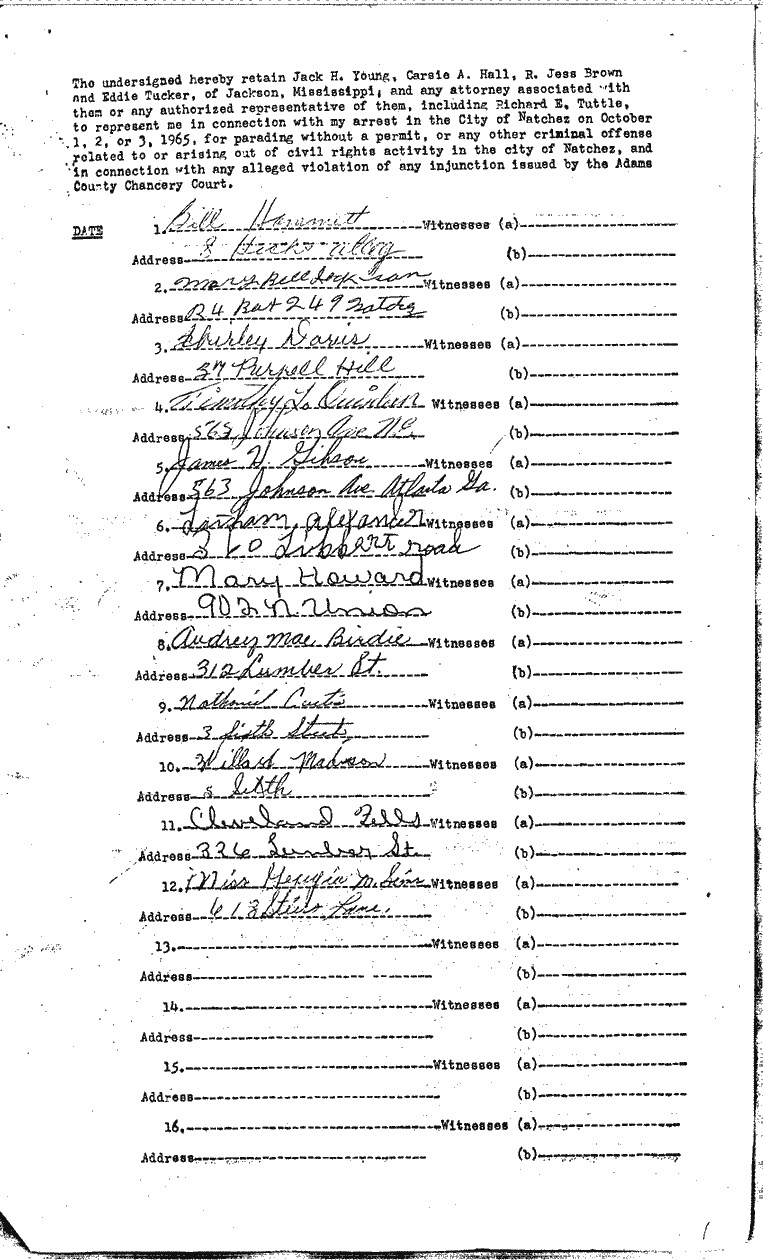 The undersigned hereby retain Jack H. Young, Carsie A. Hall, R. Jess Brown
and Eddie Tucker, of Jackson, Mississippi, and any attorney associated with
them or any authorized representative of them, including Richard E. Tuttle,
to represent me in connection with my arrest in the City of Natchez on October
1, 2, or 3, 1965, for parading without a permit, or any other criminal offense
related to or arising out of civil rights activity in the city of Natchez, and
in connection with any alleged violation of any injunction issued by the Adams
County Chancery Court.
DATE 1. Bill Hammett Witnesses (a)
Address 8 (b)
2. Mary Bell Jackson Witnesses (a)
Address R4 Box 249 (b)
3. Shirley Davis Witnesses (a)
Address 57 Purnell Hill (b)
4. Timothy L. Quinlan Witnesses (a)
Address 563 Johnson Ave N.E. (b)
5. James H. Gibson Witnesses (a)
Address 563 Johnson Ave Atlanta Ga. (b)
6. alexander Witnesses (a)
Address road (b)
7. Mary Howard Witnesses (a)
Address 902 N. Union (b)
8. Audrey Mae Birdie Witnesses (a)
Address 312 Lumber St. (b)
9. Nathaniel Curtis Witnesses (a)
Address 3 Street (b)
10. Willard Madison Witnesses (a)
Address 5 Sixth (b)
11. Cleveland Fells Witnesses (a)
Address 326 Lumber St. (b)
12. Miss Georgia M. Sims Witnesses (a)
Address 613 Lane. (b)
13. Witnesses (a)
Address (b)
14. Witnesses (a)
Address (b)
15. Witnesses (a)
Address (b)
16. Witnesses (a)
Address (b)